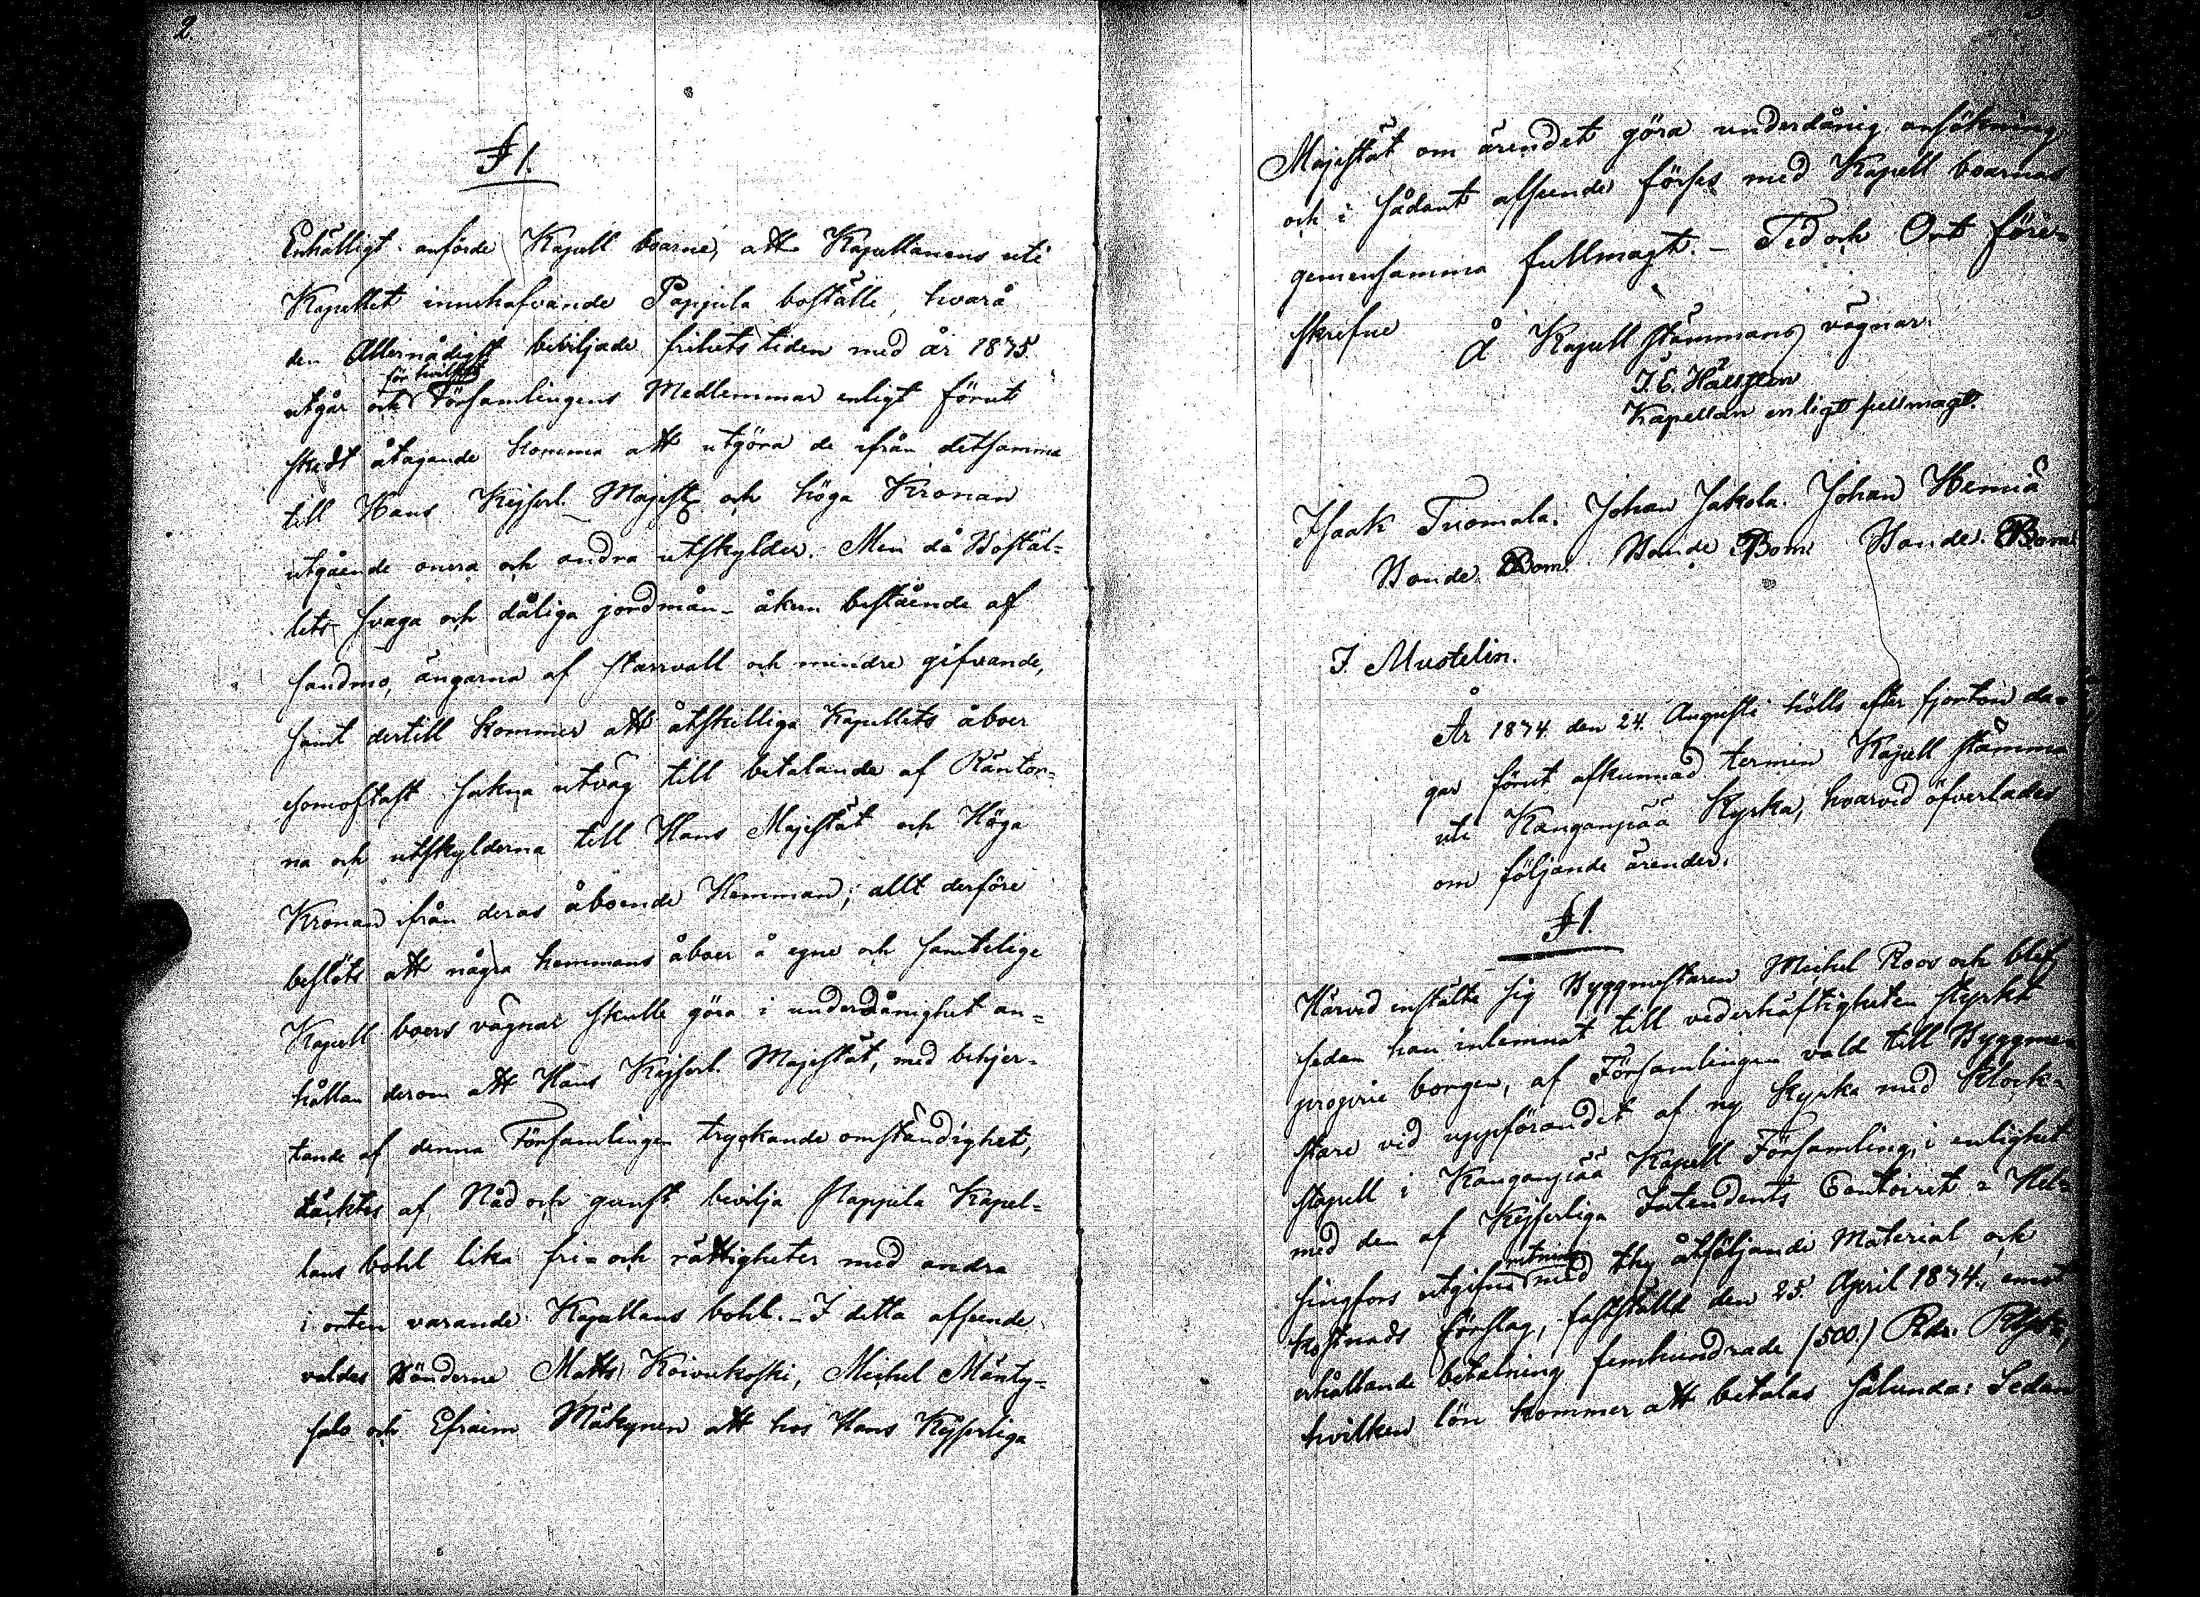 2
§ 1.
Enhälligt anförde Kapell boarne, att Kapellanens uti
Kapellet innehafvande Pappila boställe, hvarå
den Allernådigst beviljade frihets tiden med år 1875
för hvilket
utgår och Församlingens Medlemmar enligt förut
skedt åtagande komma att utgöra de ifrån detsamma
till Hans Kejserl. Majest och höga Kronan
utgående onera och andra utskylder. Men då Bostäl-
lets svaga och dåliga jordmån - åkern bestående af
sandmo, ängarna af starrvall och mindre gifvande,
samt dertill kommer att åtskilliga Kapellets åboer
somoftast sakna utväg till betalande af Räntor-
na och utskylderna till Hans Majestät och Höga
Kronan ifrån deras åboende Hemman; allt derföre
beslöts att några hemmans åboer å egne och samtelige
Kapell boers vägnar skulle göra i underdånighet an-
hållan derom att Hans Kejserl. Majestät, med behjer-
tande af denna Församlingen tryckande omständighet,
täcktes af Nåd och gunst bevilja Pappila Kapel-
lans bohl lika fri- och rättigheter med andra
i orten varande Kapellans bohl. - I detta afseende
valdes Bönderne Matts Koivukoski, Michel Mänty-
salo och Efraim Mäkynen att hos Hans Kejserliga
Majestät om ärendet göra underdånig ansökning
och i sådant afseende förses med Kapell boarnas
gemensamma fullmagt. - Tid och Ort före-
skrefne
å Kapell stämmans vägnar.
Kapellan enligt fullmagt.
Isaak Tuomala. Johan Jakola. Johan Hemiä
Bonde Bom. Bonde Bom. Bonde Bom.
J. Mustelin.
År 1874 den 24. Augusti hölls efter fjorton da-
gar förut afkunnad termin Kapell stämma
uti Kangaspää Kyrka, hvarvid öfverlades
om följande ärender.
§ 1.
Härvid instälte sig Byggmästaren Michel Roos och blef
sedan han inlemnat till vederhäftigheten styrkt
proprie borgen, af Församlingen vald till Byggmä-
stare vid uppförandet af ny Kyrka med Klock-
stapell i Kangaspää Kapell Församling, i enlighet
med den af Kejserliga Intendents Contoiret i Hel-
ritning
singfors utgifna med thy åtföljande Material och
kostnads förslag, fastställd den 25. April 1874., emot
erhållande betalning femhundrade (500.) Rdr.
hvilken lön kommer att betalas sålunda: Sedan